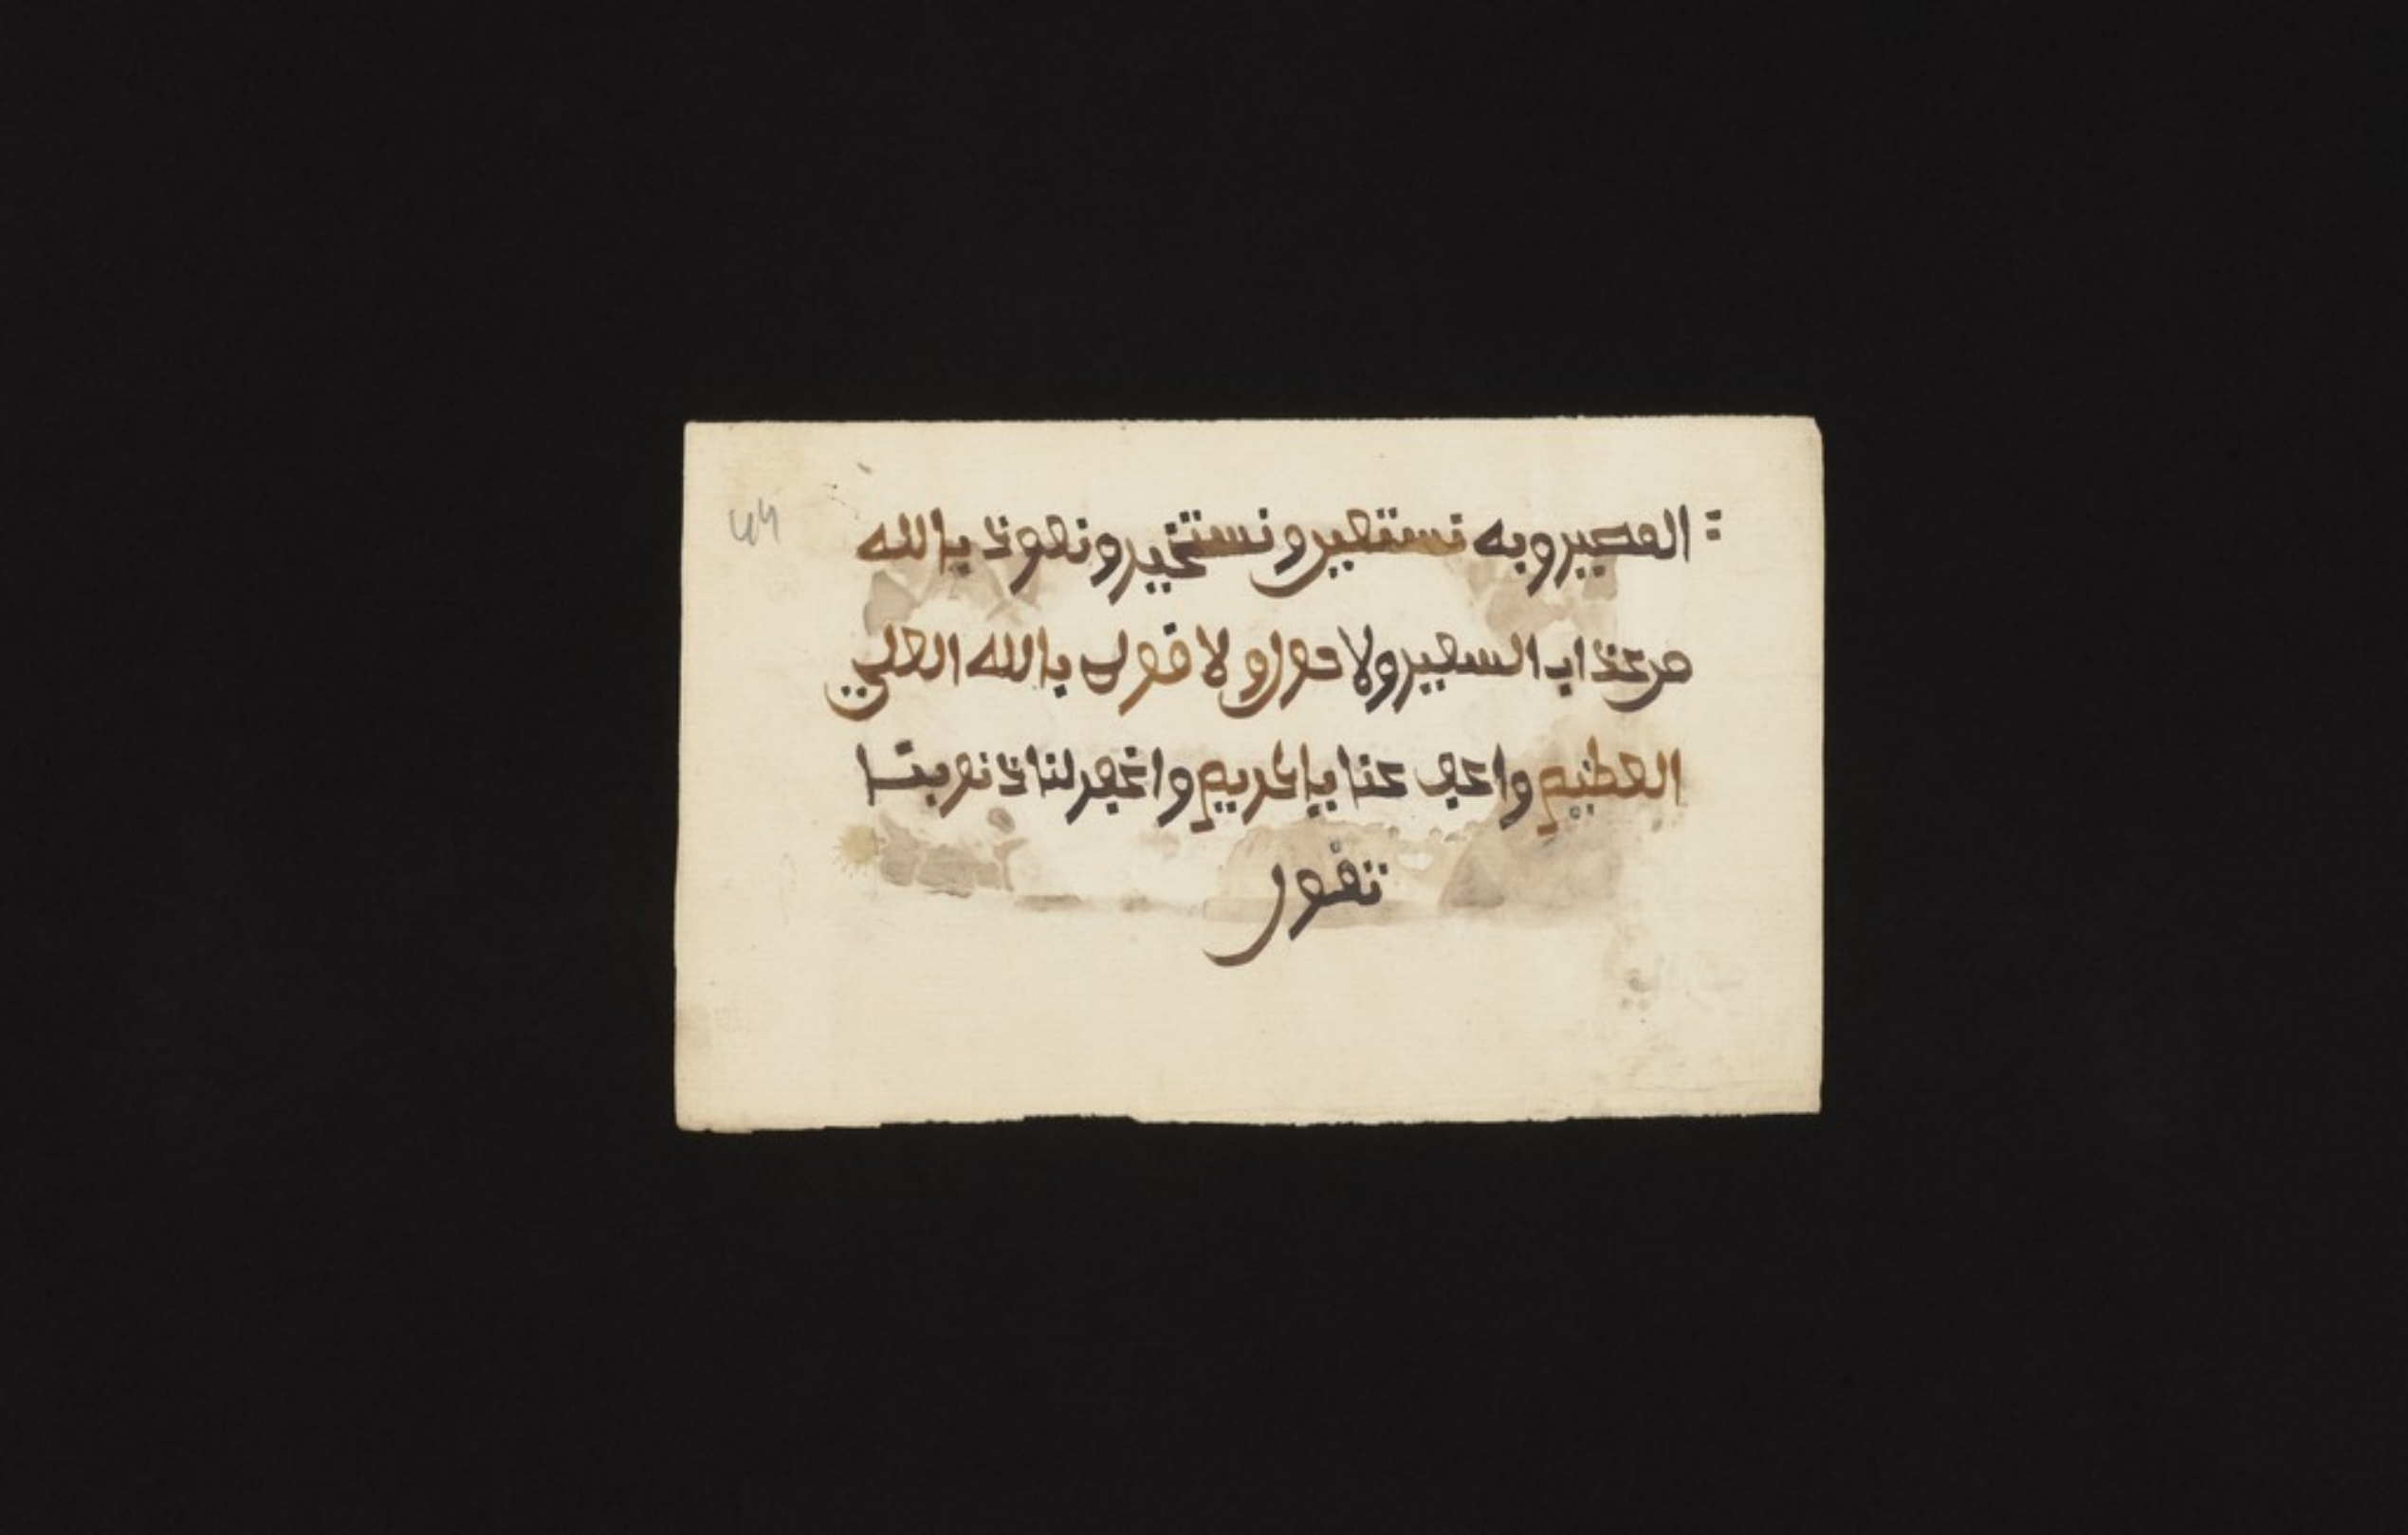 المصير وبه نستعين ونستخير ونعوذ بالله
من عذاب السعير ولا حول ولا قوة بالله العلي
العظيم واعف عنا يا كريم واغفر لنا ذنوبنا
تقول
44